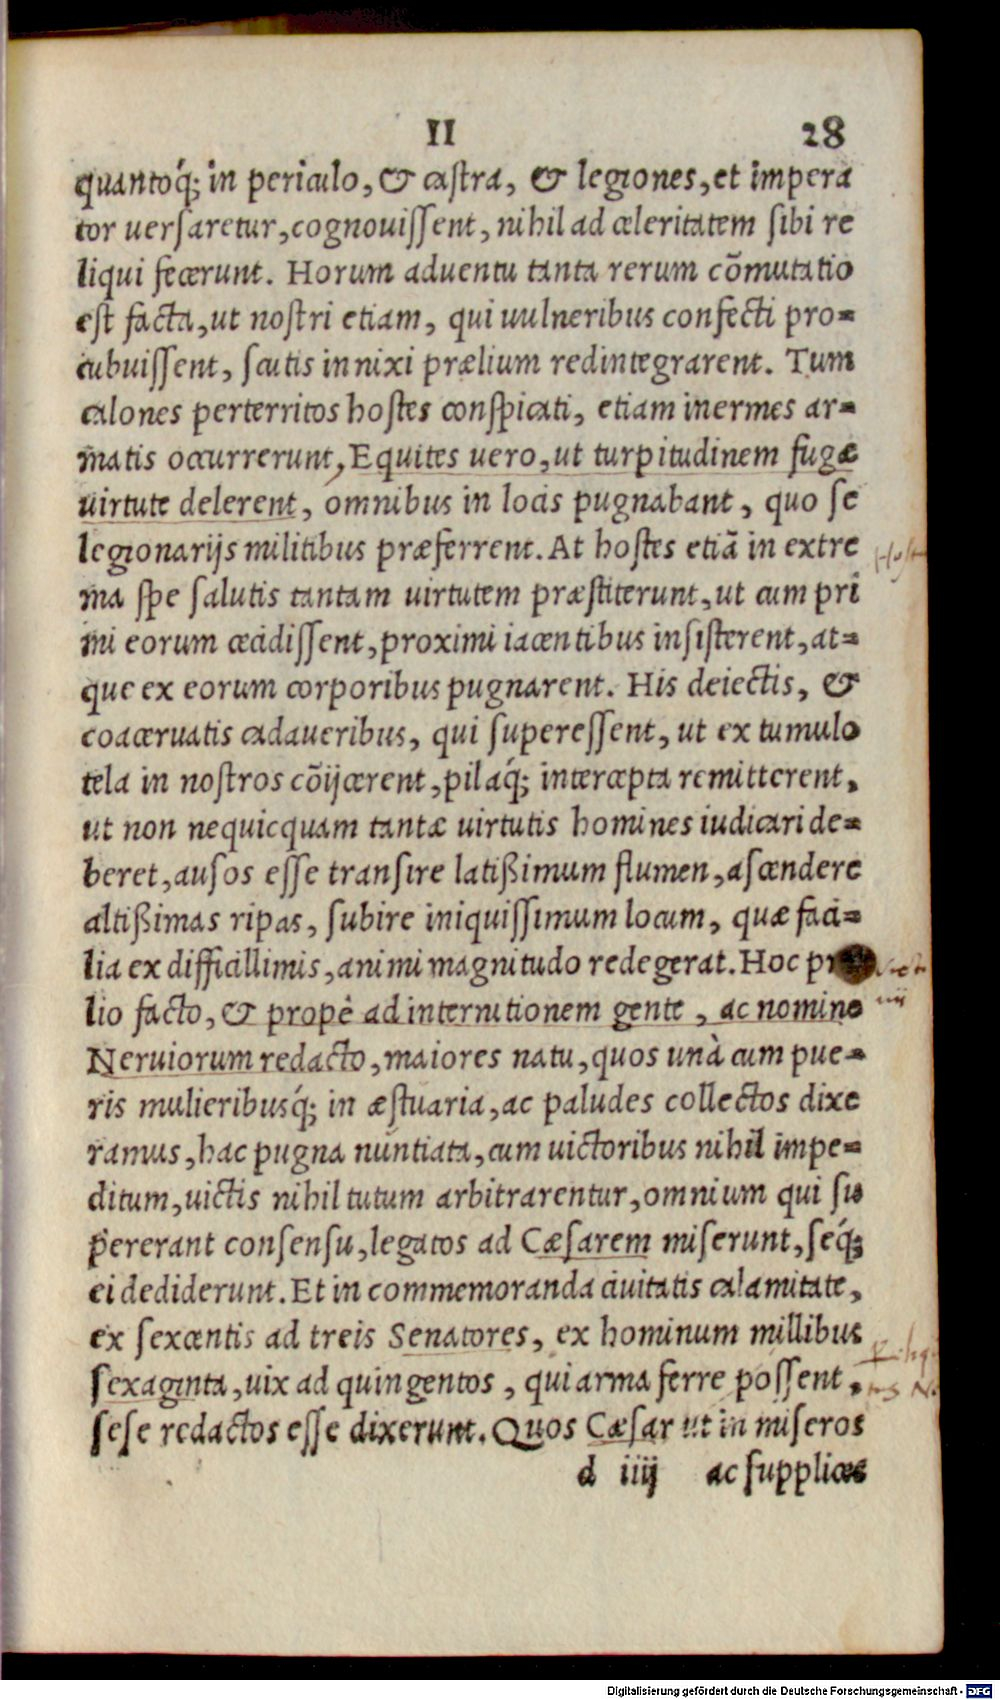 II 28
quantoq́; in periculo, & castra, & legiones, et impera
tor uersaretur, cognouissent, nihil ad celeritatem sibi re
liqui fecerunt. Horum aduentu tanta rerum cõmutatio
est facta, ut nostri etiam, qui uulneribus confecti pro=
cubuissent, scutis innixi prælium redintegrarent. Tum
calones perterritos hostes conspicati, etiam inermes ar=
matis occurrerunt, Equites uero, ut turpitudinem fugæ
uirtute delerent, omnibus in locis pugnabant, quo se
legionarijs militibus præferrent. At hostes etiã in extre
ma spe salutis tantam uirtutem præstiterunt, ut cum pri
mi eorum cecidissent, proximi iacentibus insisterent, at=
que ex eorum corporibus pugnarent. His deiectis, &
coaceruatis cadaueribus, qui superessent, ut ex tumulo
tela in nostros cõijcerent, pilaq́; intercepta remitterent,
ut non nequicquam tantæ uirtutis homines iudicari de=
beret, ausos esse transire latißimum flumen, ascendere
altißimas ripas, subire iniquissimum locum, quæ faci=
lia ex difficillimis, animi magnitudo redegerat. Hoc
lio facto, & propè ad internitionem gente, ac nomine
Neruiorum redacto, maiores natu, quos unà cum pue=
ris mulieribusq́; in æstuaria, ac paludes collectos dixe
ramus, hac pugna nuntiata, cum uictoribus nihil impe=
ditum, uictis nihil tutum arbitrarentur, omnium qui su
pererant consensu, legatos ad Cæsarem miserunt, seq́;
ei dediderunt. Et in commemoranda ciuitatis calamitate,
ex sexcentis ad treis Senatores, ex hominum millibus
sexaginta, uix ad quingentos, qui arma ferre possent,
sese redactos esse dixerunt. Quos Cæsar ut in miseros
d iiij ac supplices
Digitalisierung gefördert durch die Deutsche Forschungsgemeinschaft - DFG